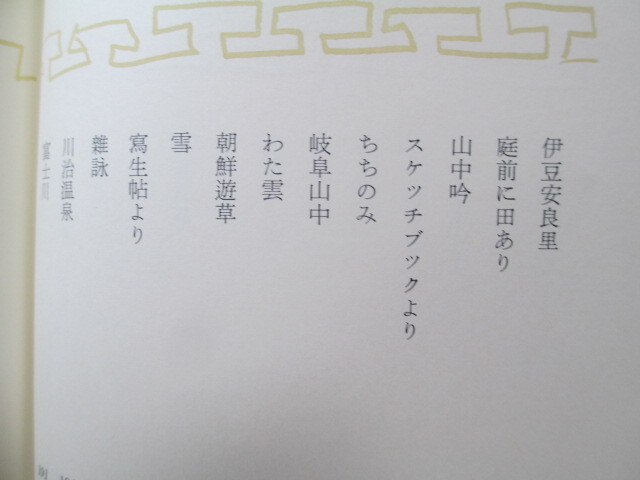 伊豆安良里
庭前に田あり
山中吟
スケツチブツクより
ちちのみ
岐阜山中
わた雲
朝鮮遊草
雪
寫生帖より
雜詠
川治温泉
富士川